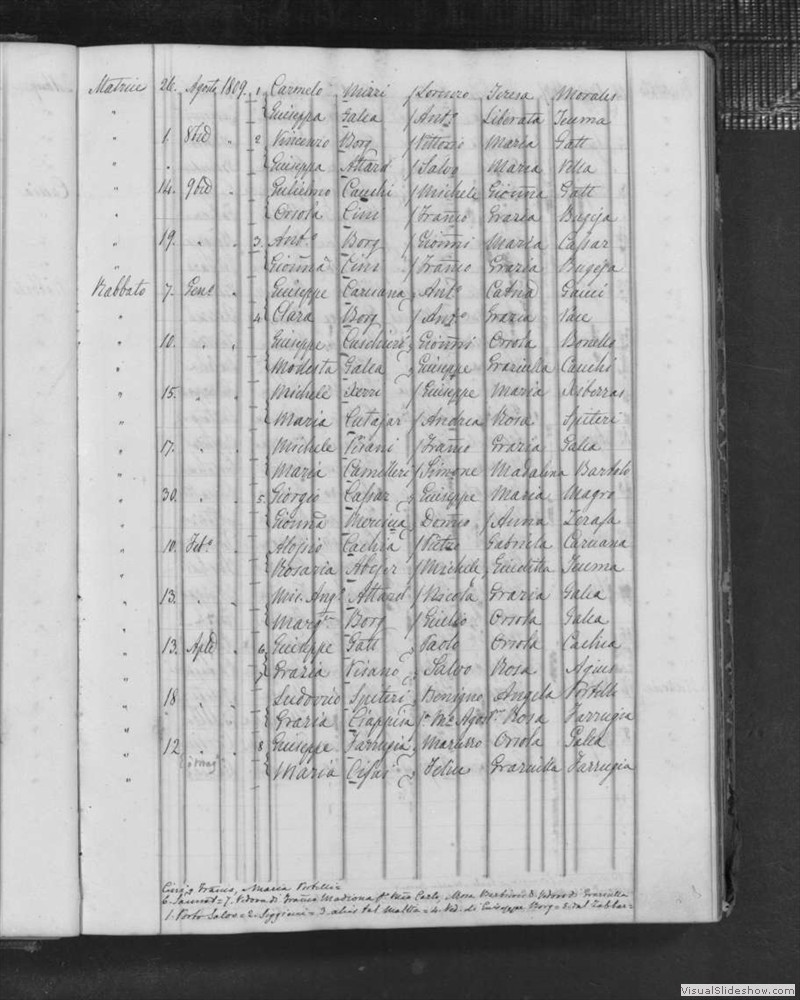 Matrice 26. Agosto 1809. 1. Carmelo Mizzi / Lorenzo Teresa Morales
" Giuseppa Galea / Ant.o Liberata Teuma
" 1. 8bre " 2. Vincenzo Borg / Vittorio Maria Gatt
" Giuseppa Attard / Salvo Maria Vella
" 14. 9bre " Gulielmo Cauchi / Michele Gioanna Gatt
" Orsola Cini / Franco Grazia
" 19. " " 3. Ant.o Borg / Gioanni Maria Cassar
" Gioanna Cini / Franco Grazia
Rabbato 7. Gen.o " Giuseppe Caruana / Ant.o Catna Gauci
" 4. Clara Borg / Ang.o Grazia Pace
" 10. " " Giuseppe Cuschieri / Gioanni Orsola Bonello
" Modesta Galea / Giuseppe Graziulla Cauchi
" 15. " " Michele Xerri / Giuseppe Maria Xiberras
" Maria Cutajar / Andrea Rosa Spiteri
" 17. " " Michele / Franco Grazia Galea
" Maria Camilleri / Simone Madalina Bartolo
" 30. " " 5. Giorgio Cassar / Giuseppe Maria Magro
" Gioanna / Dom.co / Anna Zerafa
" 10. Feb.o " Aloisio Cachia / Pietro Gabriela Caruana
" Rosaria Abejer / Michele Giuditta Teuma
" 13. " " Mic. Ang.o Attard / Nicola Grazia Galea
" Marg.ta Borg / Giulio Orsola Galea
" 13. Aple " 6. Giuseppe Gatt / Paolo Orsola Cachia
" 7. Grazia / Salvo Rosa Agius
" 18 " " Ludovico Spiteri / Benigno Angela Portelli
" Grazia Ciappira Rosa Farrugia
" 12 " " 8. Giuseppe Farrugia / Orsola Galea
" Maria / Felice Graziulla Farrugia
Franco, Maria Portelli
7. Vedova di Franco Carlo, Vedovo di Graziulla
1. Porto Salvo = 2. Siggieui = 3. tal Maltta = 4. Ved. di Giuseppe Borg = 5. dal Zabbar =
VisualSlideshow.com